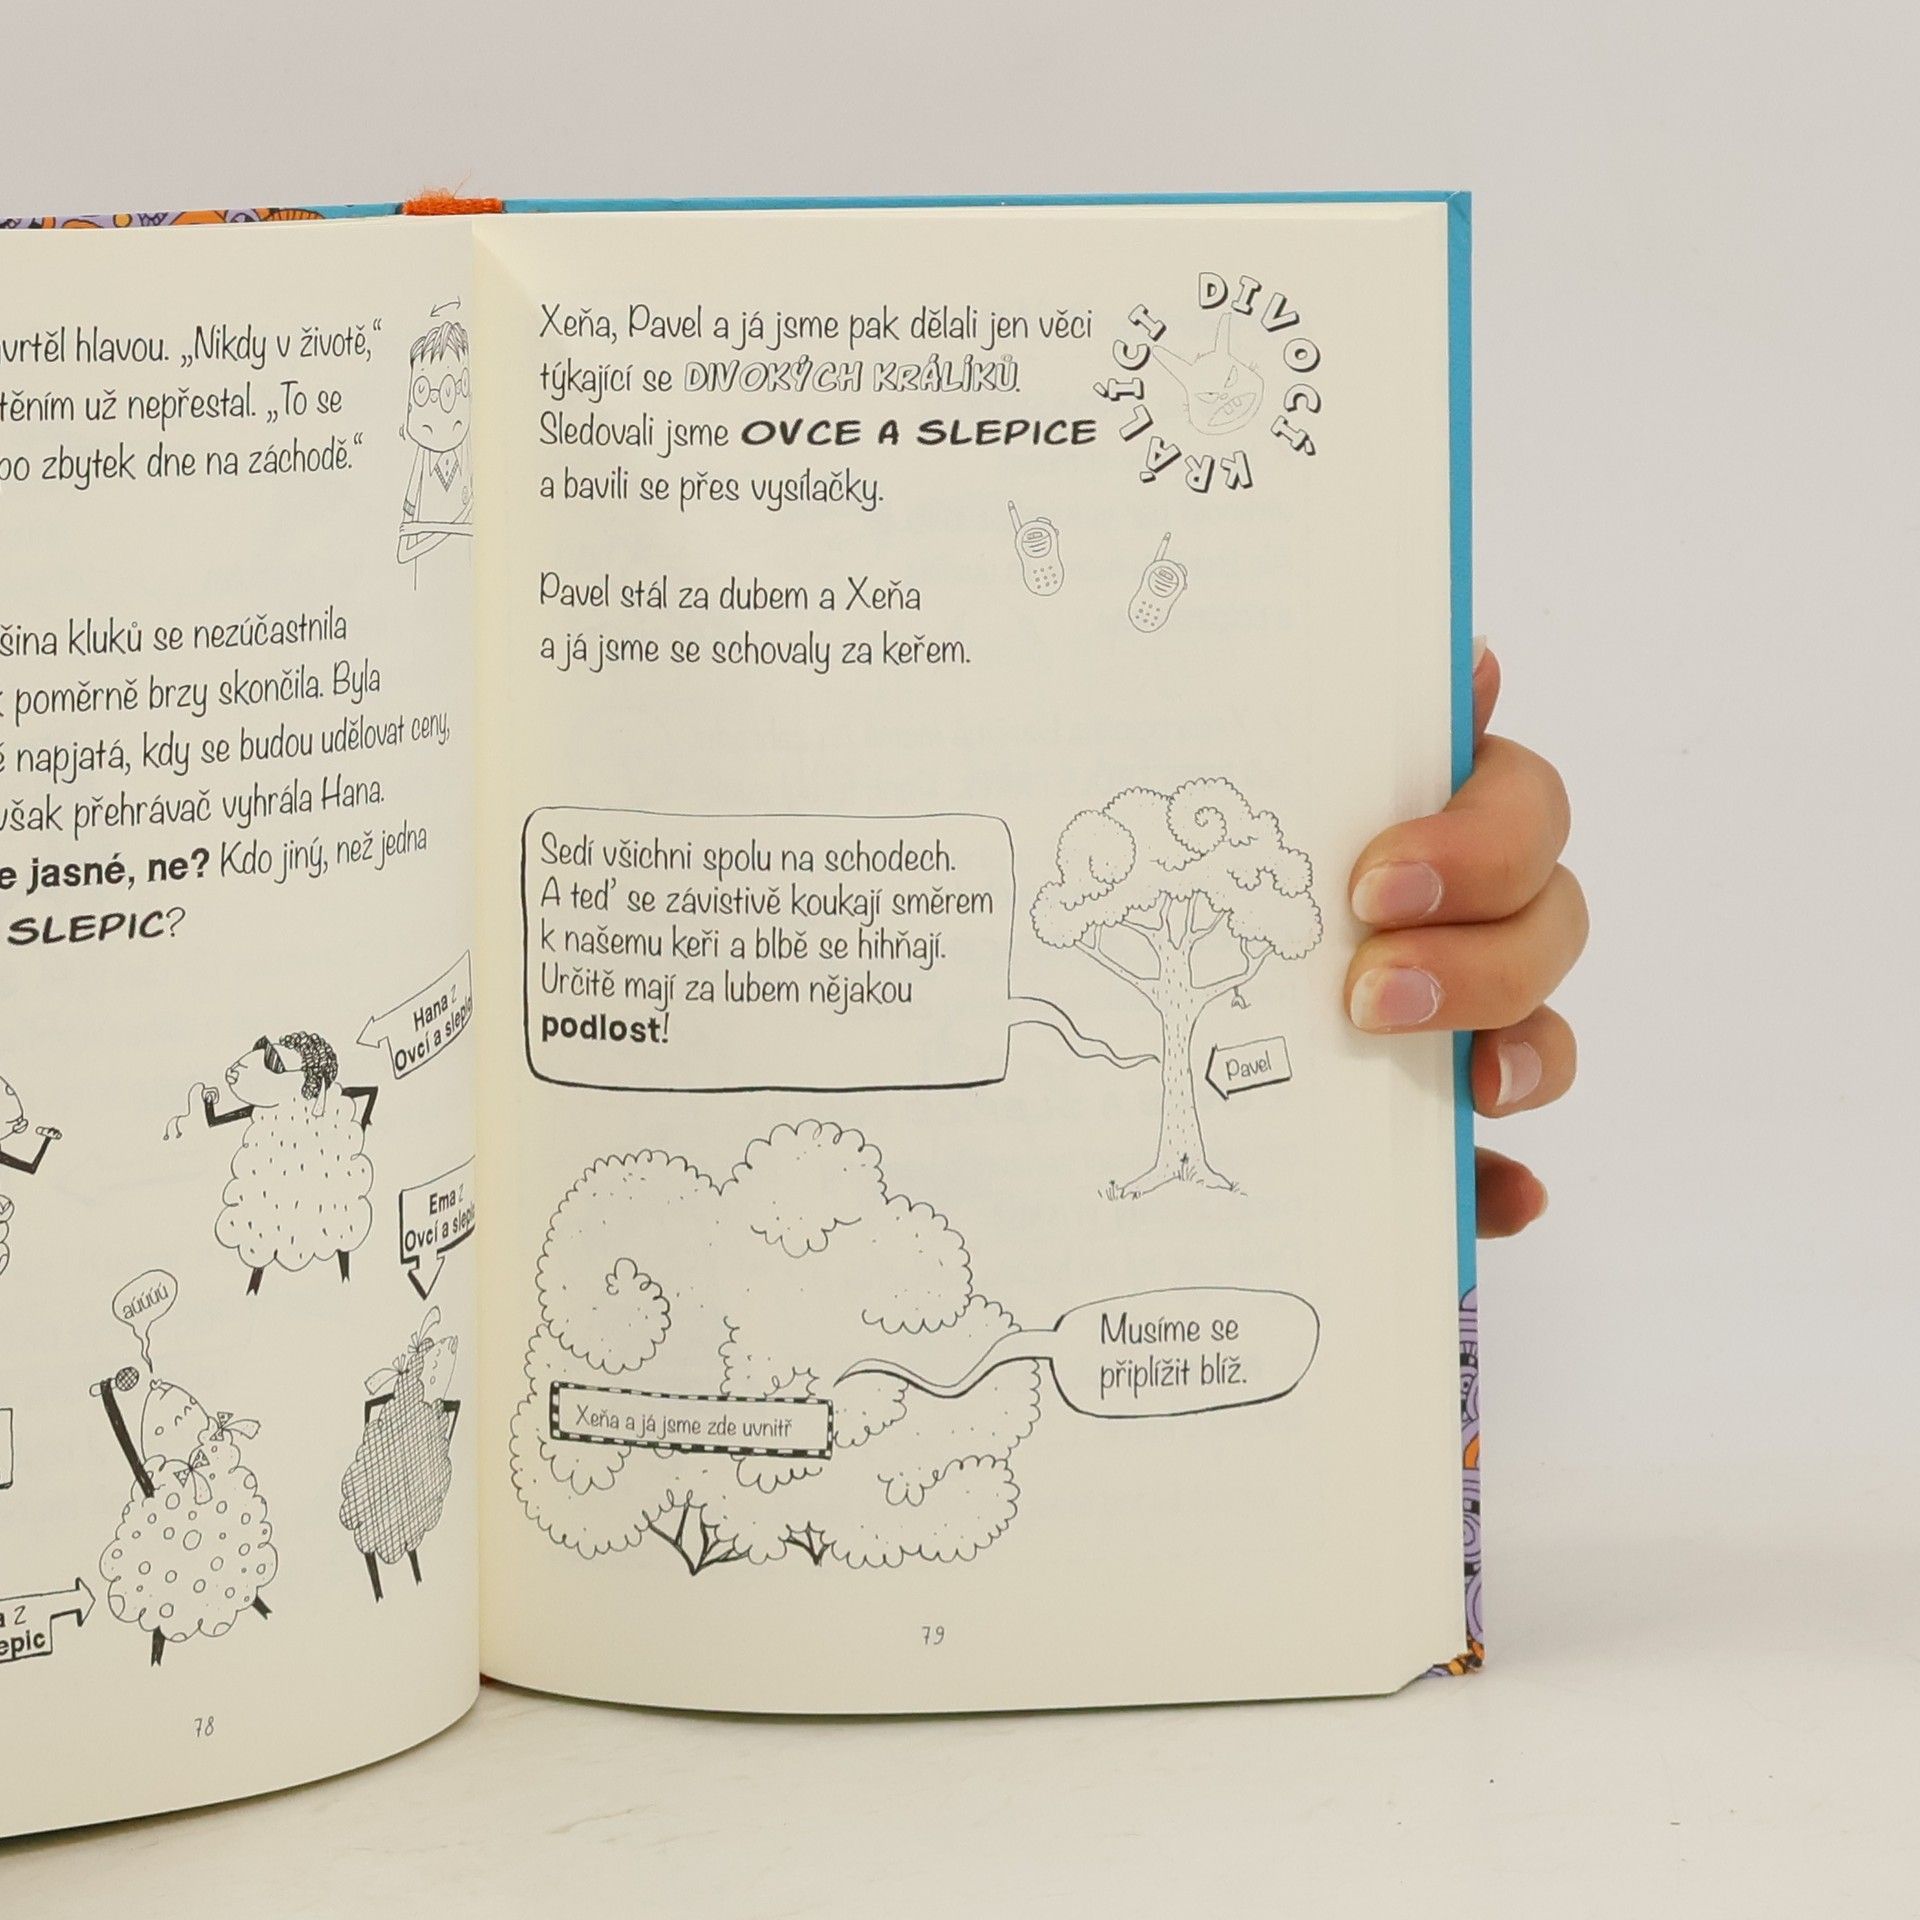 vrtěl hlavou. „Nikdy v životě,“
těním už nepřestal. „To se
zbytek dne na záchodě.“
šina kluků se nezúčastnila
poměrně brzy skončila. Byla
napjatá, kdy se budou udělovat ceny,
však přehrávač vyhrála Hana.
e jasné, ne? Kdo jiný, než jedna
SLEPIC?
Hana z
Ovcí a slepic
Ema z
Ovcí a slepic
aúúúú
a z
epic
78
Xeňa, Pavel a já jsme pak dělali jen věci
týkající se DIVOKÝCH KRÁLÍKŮ.
Sledovali jsme OVCE A SLEPICE
a bavili se přes vysílačky.
DIVOCÍ KRÁLÍCI
Pavel stál za dubem a Xeňa
a já jsme se schovaly za keřem.
Sedí všichni spolu na schodech.
A teď se závistivě koukají směrem
k našemu keři a blbě se hihňají.
Určitě mají za lubem nějakou
podlost!
Pavel
Musíme se
připlížit blíž.
Xeňa a já jsme zde uvnitř
79